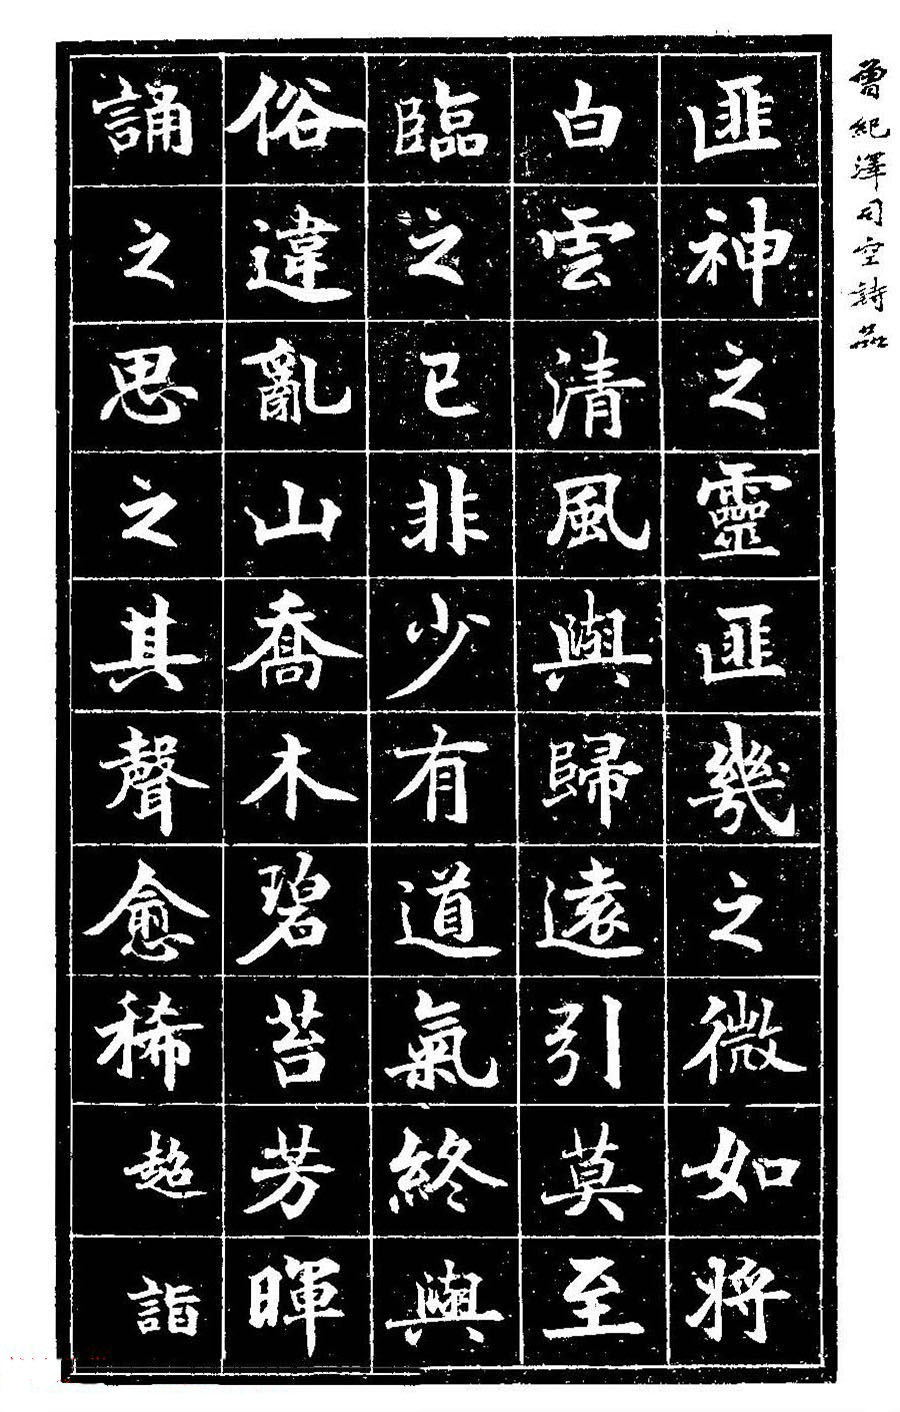 曾紀澤司空詩品
匪神之靈匪幾之微如將
白雲清風與歸遠引莫至
臨之已非少有道氣終與
俗違亂山喬木碧苔芳暉
誦之思之其聲愈稀超詣